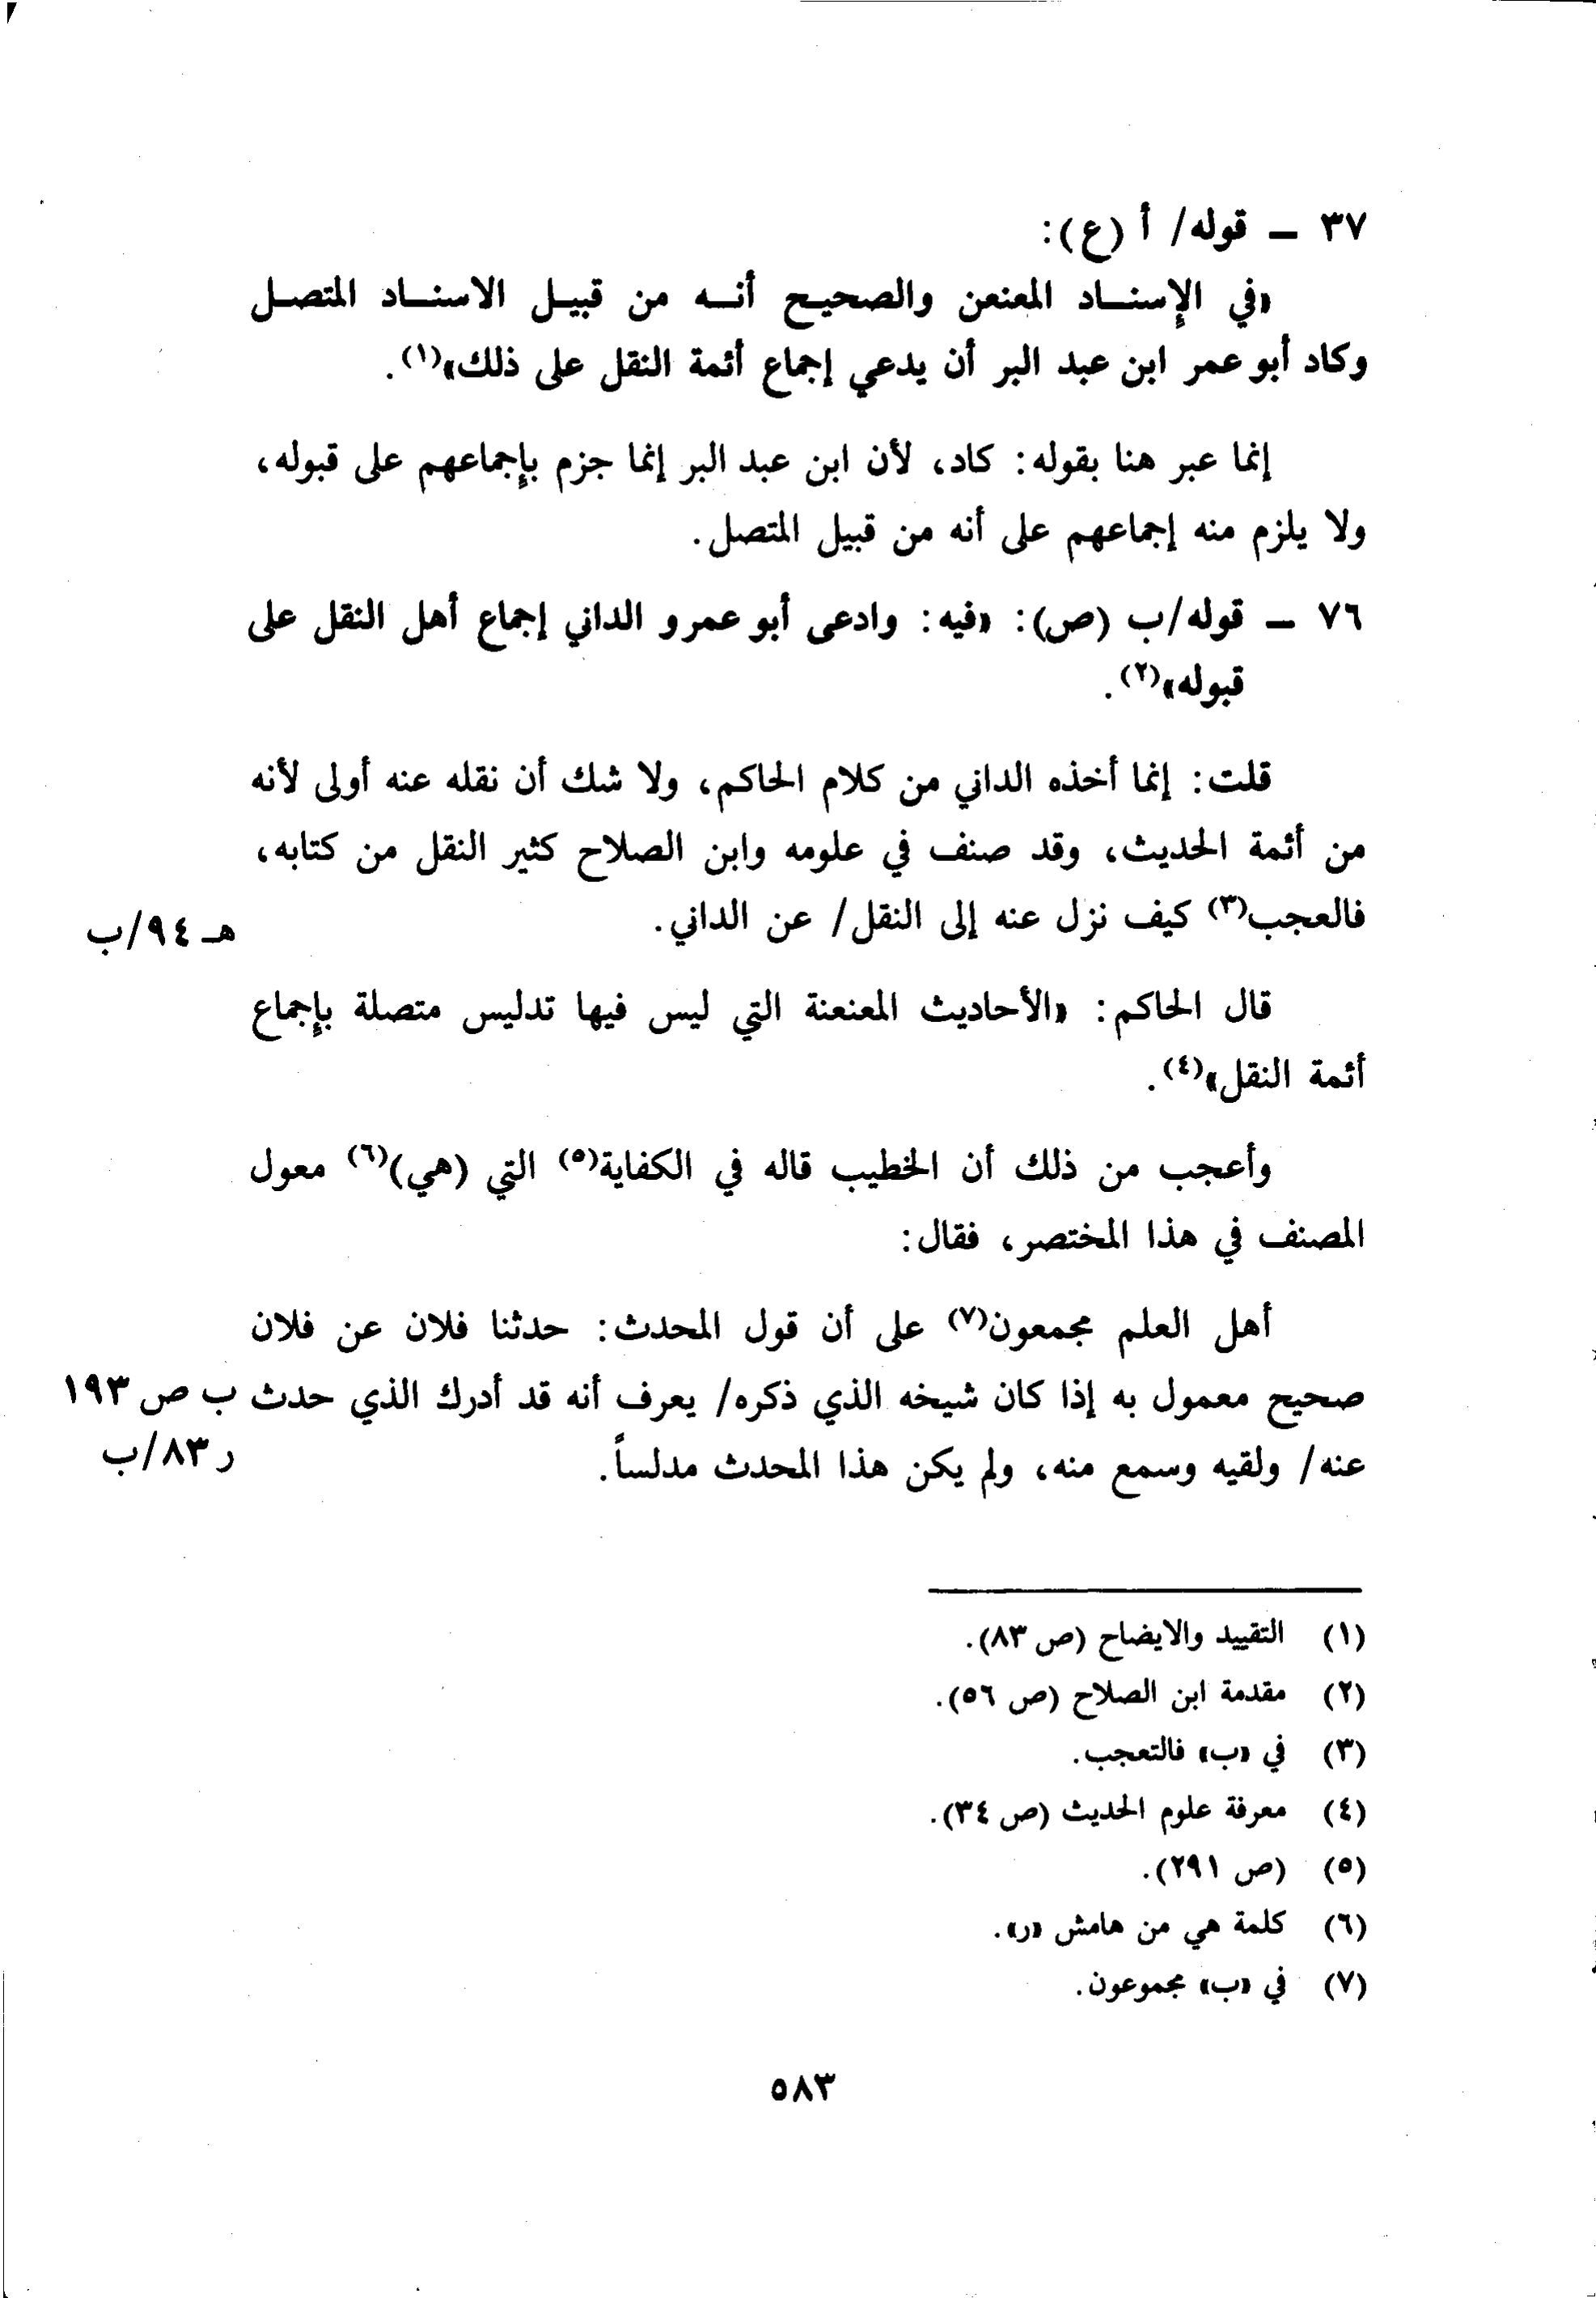 ٣٧ ــ قوله/ أ (ع):
«في الإسنـاد المعنعن والصحيـح أنـه من قبيـل الاسنـاد المتصـل
وكاد أبو عمر ابن عبد البر أن يدعي إجماع أئمة النقل على ذلك»(١).
إنما عبر هنا بقوله: كاد، لأن ابن عبد البر إنما جزم بإجماعهم على قبوله،
ولا يلزم منه إجماعهم على أنه من قبيل المتصل.
٧٦ ــ قوله/ب (ص): «فيه: وادعى أبو عمرو الداني إجماع أهل النقل على
قبوله»(٢).
قلت: إنما أخذه الداني من كلام الحاكم، ولا شك أن نقله عنه أولى لأنه
من أئمة الحديث، وقد صنف في علومه وابن الصلاح كثير النقل من كتابه،
فالعجب(٣) كيف نزل عنه إلى النقل/ عن الداني. هـ ٩٤/ب
قال الحاكم: «الأحاديث المعنعنة التي ليس فيها تدليس متصلة بإجماع
أئمة النقل»(٤).
وأعجب من ذلك أن الخطيب قاله في الكفاية(٥) التي (هي)(٦) معول
المصنف في هذا المختصر، فقال:
أهل العلم مجمعون(٧) على أن قول المحدث: حدثنا فلان عن فلان
صحيح معمول به إذا كان شيخه الذي ذكره/ يعرف أنه قد أدرك الذي حدث ب ص ١٩٣
عنه/ ولقيه وسمع منه، ولم يكن هذا المحدث مدلساً. ر ٨٣/ب
(١) التقييد والايضاح (ص ٨٣).
(٢) مقدمة ابن الصلاح (ص ٥٦).
(٣) في «ب» فالتعجب.
(٤) معرفة علوم الحديث (ص ٣٤).
(٥) (ص ٢٩١).
(٦) كلمة هي من هامش «ر».
(٧) في «ب» مجموعون.
٥٨٣